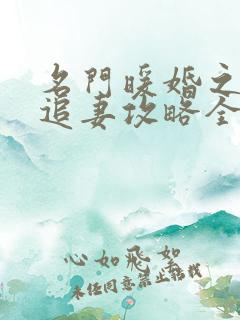 名門暖婚之
追妻攻略全
心如飛絮
未經同意禁止轉載